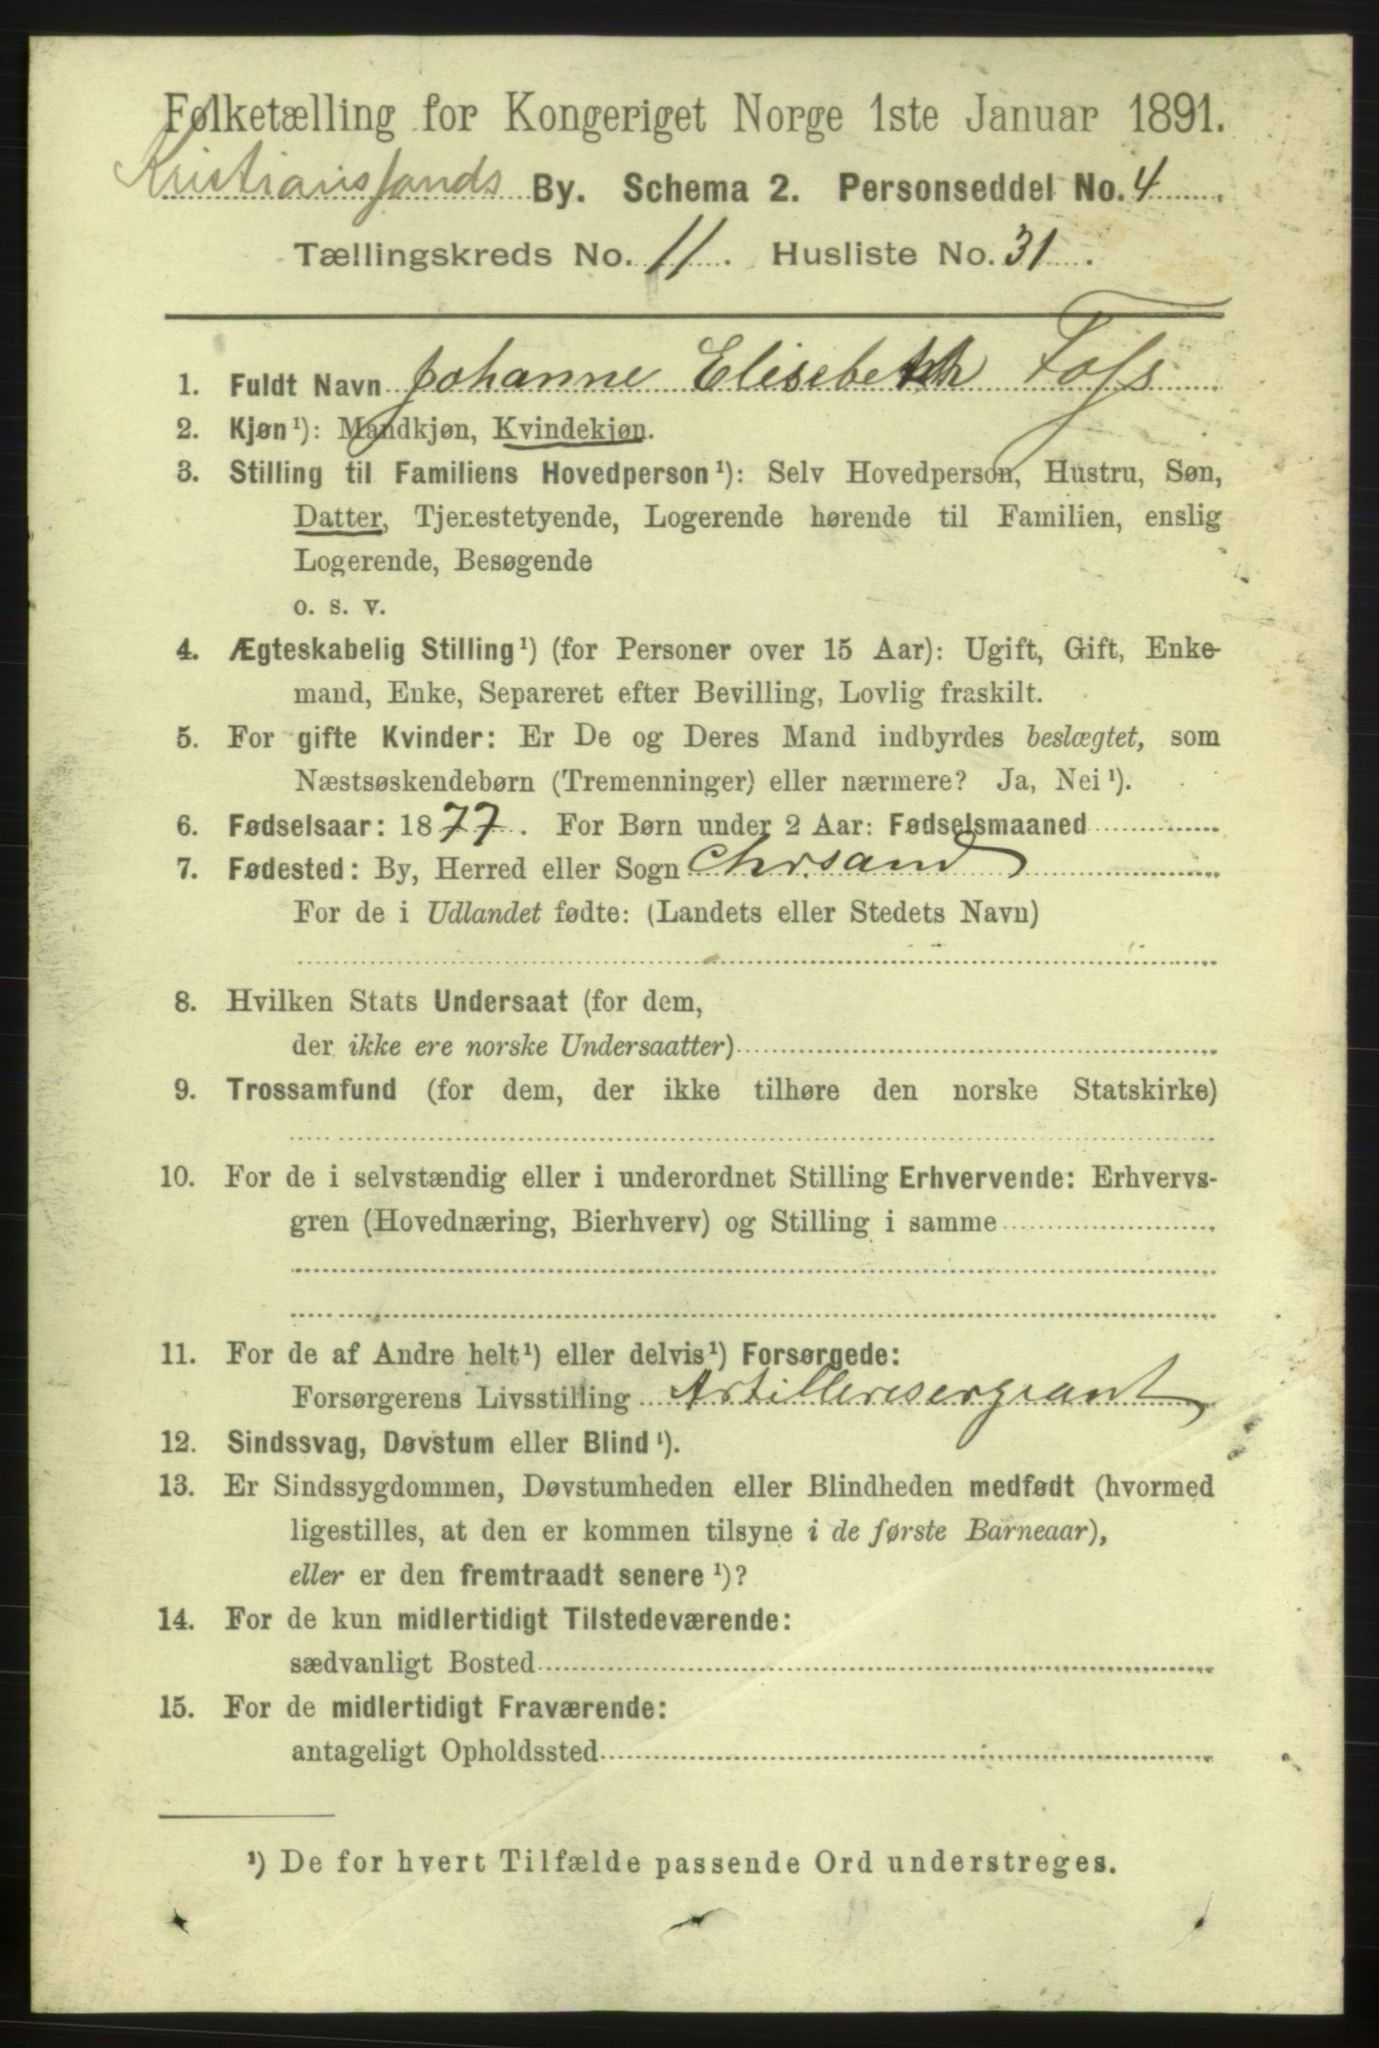 Folketælling for Kongeriget Norge 1ste Januar 1891.
Kristianssands By. Schema 2. Personseddel No. 4.
Tællingskreds No. 11. Husliste No. 31.
1. Fuldt Navn Johanne Elisebeth Foss
2. Kjøn¹): Mandkjøn, Kvindekjøn.
3. Stilling til Familiens Hovedperson¹): Selv Hovedperson, Hustru, Søn,
Datter, Tjenestetyende, Logerende hørende til Familien, enslig
Logerende, Besøgende
o. s. v.
4. Ægteskabelig Stilling¹) (for Personer over 15 Aar): Ugift, Gift, Enke-
mand, Enke, Separeret efter Bevilling, Lovlig fraskilt.
5. For gifte Kvinder: Er De og Deres Mand indbyrdes beslægtet, som
Næstsøskendebørn (Tremenninger) eller nærmere? Ja, Nei¹).
6. Fødselsaar: 1877. For Børn under 2 Aar: Fødselsmaaned
7. Fødested: By, Herred eller Sogn Chrsand
For de i Udlandet fødte: (Landets eller Stedets Navn)
8. Hvilken Stats Undersaat (for dem,
der ikke ere norske Undersaatter)
9. Trossamfund (for dem, der ikke tilhøre den norske Statskirke)
10. For de i selvstændig eller i underordnet Stilling Erhvervende: Erhvervs-
gren (Hovednæring, Bierhverv) og Stilling i samme
11. For de af Andre helt¹) eller delvis¹) Forsørgede:
Forsørgerens Livsstilling Artillerisergeant
12. Sindssvag, Døvstum eller Blind¹).
13. Er Sindssygdommen, Døvstumheden eller Blindheden medfødt (hvormed
ligestilles, at den er kommen tilsyne i de første Barneaar),
eller er den fremtraadt senere¹)?
14. For de kun midlertidigt Tilstedeværende:
sædvanligt Bosted
15. For de midlertidigt Fraværende:
antageligt Opholdssted
¹) De for hvert Tilfælde passende Ord understreges.